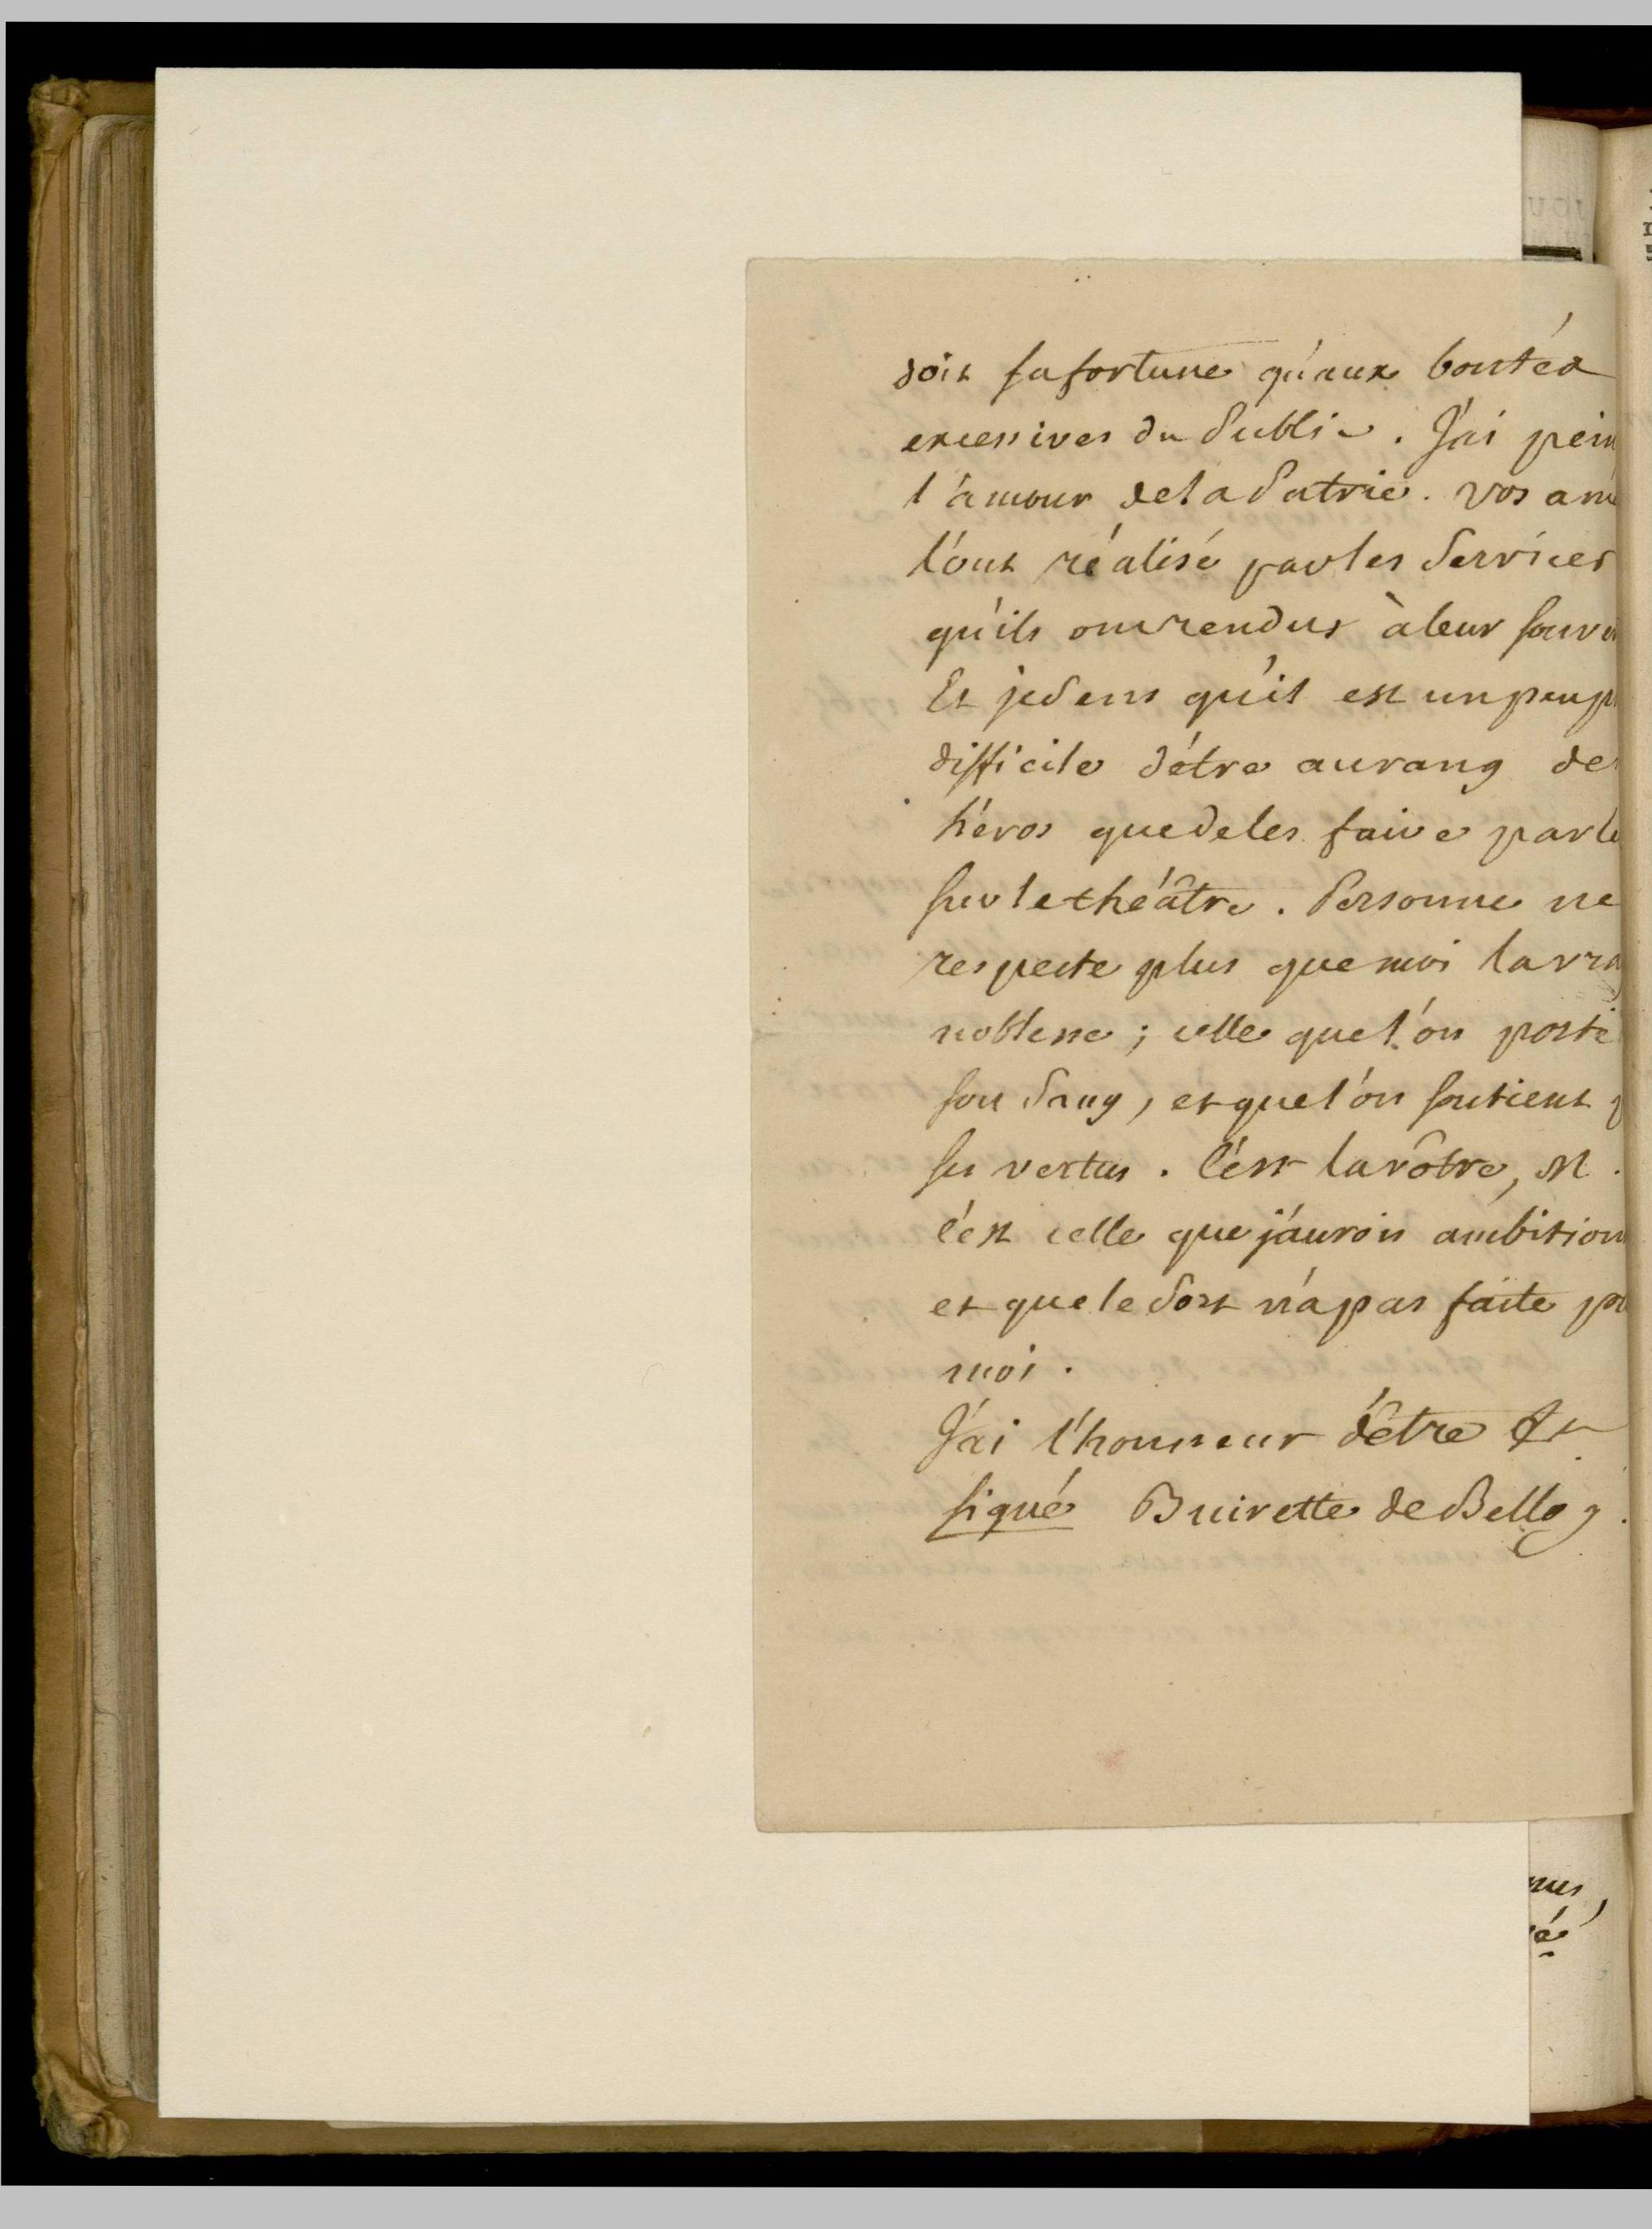 doit sa fortune qu'aux bontés
excessives du Public. J'ai pein
l'amour de la Patrie. Vos anc
l'ont réalisé par les Services
qu'ils ont rendus à leur souve
Et je sens qu'il est un peu p
difficile d'être au rang de
héros que de les faire parle
sur le théâtre. Personne ne
respecte plus que moi la vra
noblesse; celle que l'on porte
son Sang, et que l'on soutient p
ses vertus. C'est la vôtre, M.
C'est celle que j'aurois ambition
et que le Sort n'a pas faite po
moi.
J'ai l'honneur d'être &c
signé Buirette de Belloy.